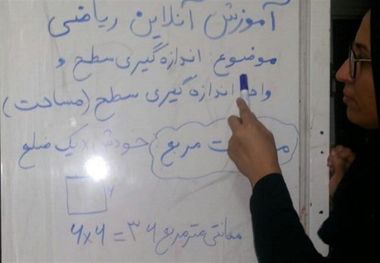 آموزش آنلاین ریاضی
موضوع اندازه گیری سطح و
واحد اندازه گیری سطح (مساحت)
مربع خودش × یک ضلع
۶
۶×۶ = ۳۶ سانتی متر مربع